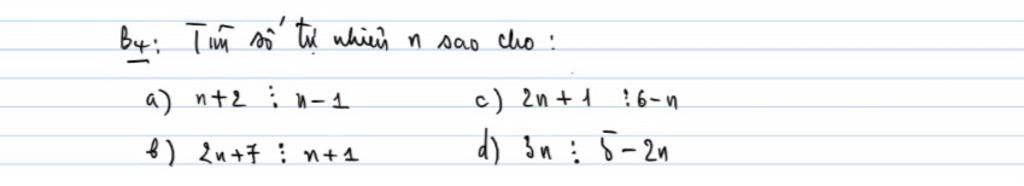 B4: Tìm số tự nhiên n sao cho :
a) n+2 ⋮ n-1
c) 2n+1 ⋮ 6-n
b) 2n+7 ⋮ n+1
d) 3n ⋮ 5-2n